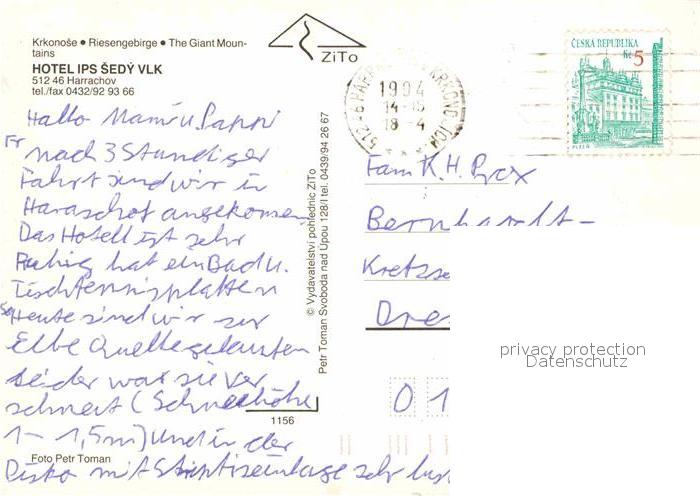 Krkonoše ● Riesengebirge ● The Giant Moun-
tains
HOTEL IPS ŠEDÝ VLK
512 46 Harrachov
tel./fax 0432/92 93 66
ZiTo
ČESKÁ REPUBLIKA
Kč 5
PLZEŇ
512 46 HARRACHOV V KRKONOŠÍCH
1994
14-15
18-4
Hallo Mami u. Pappi
Fr nach 3 Stundiger
Fahrt sind wir in
Haraschof angekommen
Das Hotell ist sehr
Ruhig hat ein Bad u.
Tischtennisplatten
Sa Heute sind wir zur
Elbe Quelle gelaufen
leider war sie ver
schneit (Schneehöhe
1 - 1,5m) und in der
Disko mit Striptiseinlage sehr
Fam K. H.
Bernhardt-
Kretzs
Dre
01
© Vydavatelství pohlednic ZiTo
Petr Toman Svoboda nad Úpou 128/I tel. 0439/94 26 67
1156
Foto Petr Toman
privacy protection
Datenschutz